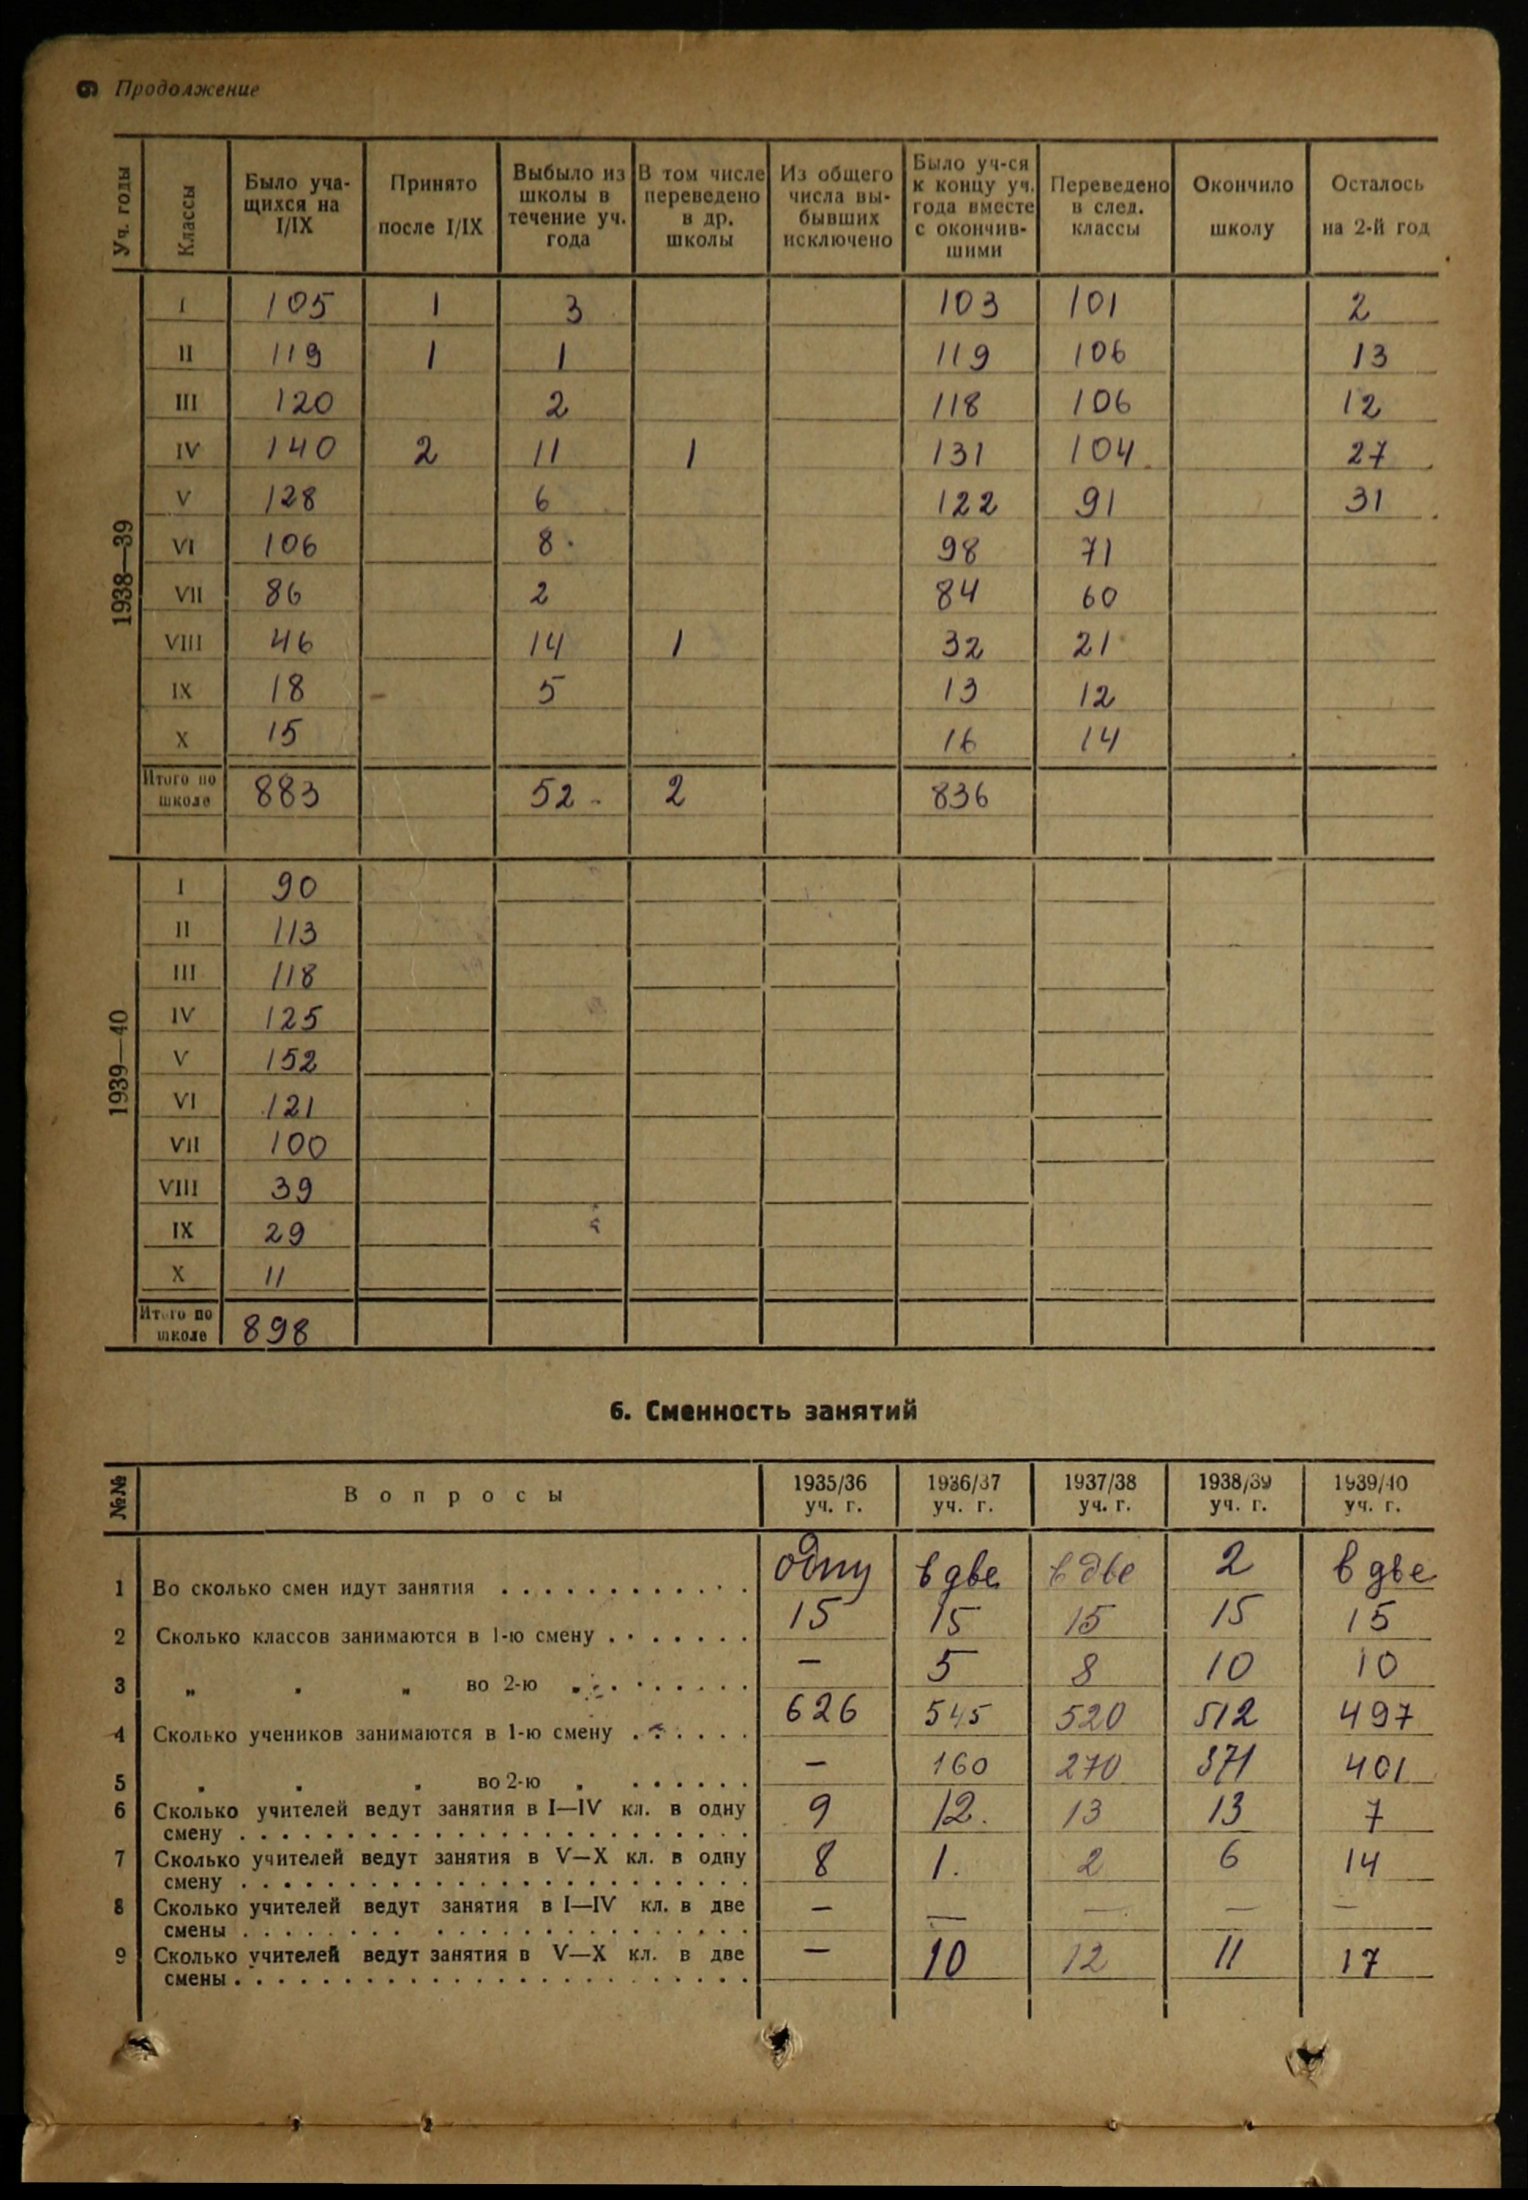 6 Продолжение
Уч. годы | Классы | Было учащихся на I/IX | Принято после I/IX | Выбыло из школы в течение уч. года | В том числе переведено в др. школы | Из общего числа выбывших исключено | Было уч-ся к концу уч. года вместе с окончившими | Переведено в след. классы | Окончило школу | Осталось на 2-й год
1938—39
I 105 1 3 103 101 2
II 119 1 1 119 106 13
III 120 2 118 106 12
IV 140 2 11 1 131 104 27
V 128 6 122 91 31
VI 106 8 98 71
VII 86 2 84 60
VIII 46 14 1 32 21
IX 18 - 5 13 12
X 15 16 14
Итого по школе 883 52 2 836
1939—40
I 90
II 113
III 118
IV 125
V 152
VI 121
VII 100
VIII 39
IX 29
X 11
Итого по школе 898
6. Сменность занятий
№№ Вопросы 1935/36 уч. г. 1936/37 уч. г. 1937/38 уч. г. 1938/39 уч. г. 1939/40 уч. г.
1 Во сколько смен идут занятия . . . одну в две в две 2 в две
2 Сколько классов занимаются в 1-ю смену . . . 15 15 15 15 15
3 „ „ „ во 2-ю „ . . . — 5 8 10 10
4 Сколько учеников занимаются в 1-ю смену . . . 626 545 520 512 497
5 „ „ „ во 2-ю „ . . . — 160 270 371 401
6 Сколько учителей ведут занятия в I—IV кл. в одну
смену . . . 9 12. 13 13 7
7 Сколько учителей ведут занятия в V—X кл. в одну
смену . . . 8 1. 2 6 14
8 Сколько учителей ведут занятия в I—IV кл. в две
смены . . . — — — — —
9 Сколько учителей ведут занятия в V—X кл. в две
смены . . . — 10 12 11 17